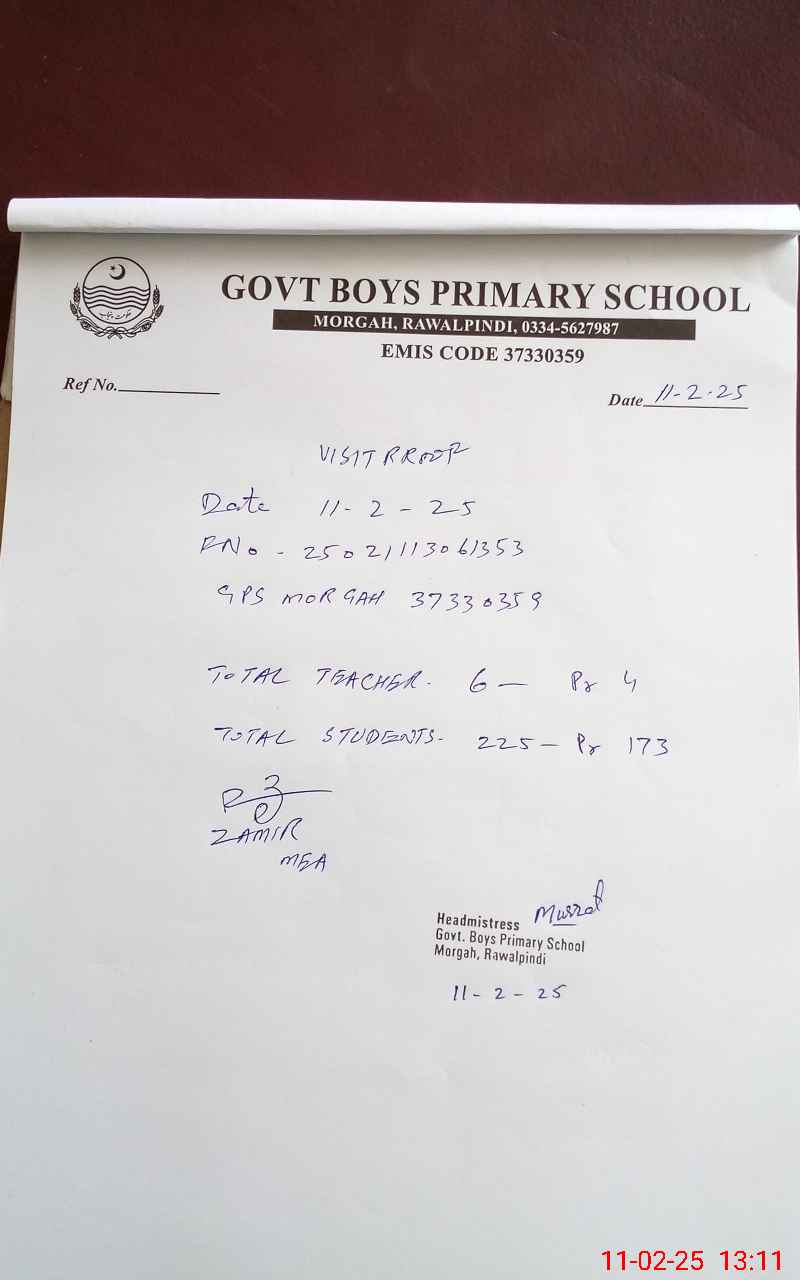 حکومت پنجاب
GOVT BOYS PRIMARY SCHOOL
MORGAH, RAWALPINDI, 0334-5627987
EMIS CODE 37330359
Ref No.
Date 11-2-25
VISIT PROOF
Date 11-2-25
RNo - 250211113061353
GPS MORGAH 37330359
TOTAL TEACHER. 6 — Pr 4
TOTAL STUDENTS. 225 — Pr 173
ZAMIR
MEA
Headmistress Mussrat
Govt. Boys Primary School
Morgah, Rawalpindi
11-2-25
11-02-25 13:11